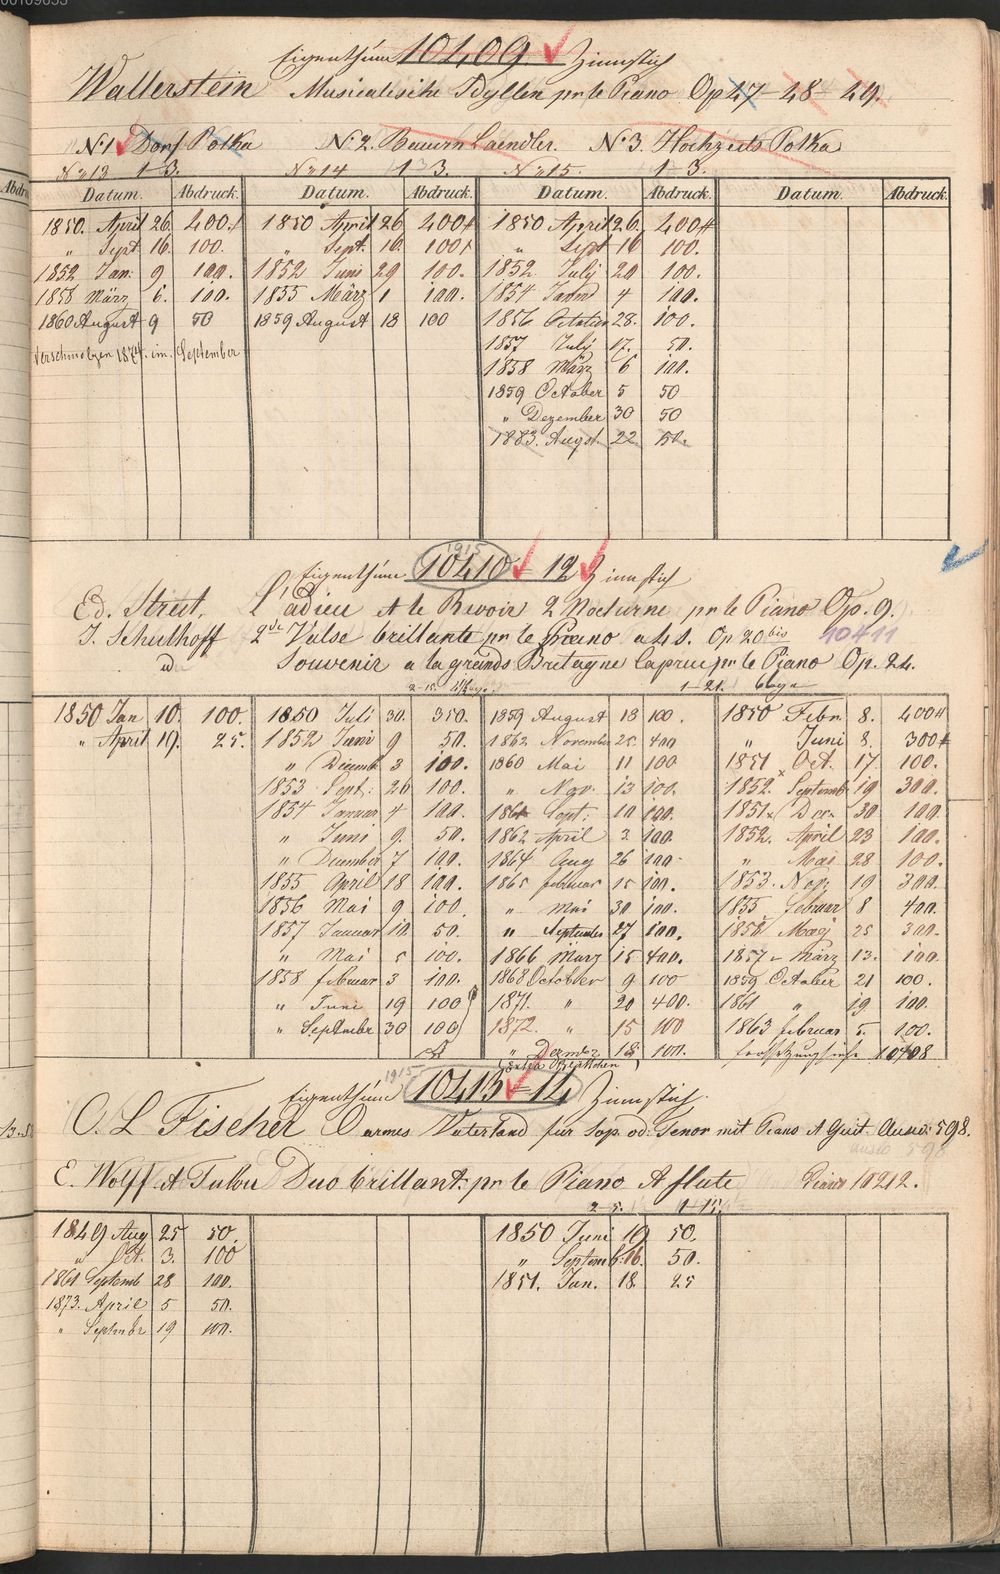 00109653
Eigenthum 10409. Zinnstich
Wallerstein Musicalische Idyllen pr le Piano Op 47 - 48 - 49.
N: 1 Dorf Polka N: 2. Bauern Laendler. N: 3. Hochzeits Polka
N: 13 1-3. N: 14 1-3. N: 15. 1-3.
Datum. Abdruck. Datum. Abdruck. Datum. Abdruck. Datum. Abdruck.
1850. April 26. 400. 1850 April 26 400 1850 April 26. 400
" Sept 16. 100. " Sept. 16 100 " Sept 16 100.
1852 Jan: 9 100. 1852 Juni 29 100. 1852 July 20 100.
1858 März 6. 100. 1855 März 1 100. 1854 4 100.
1860 August 9 50 1859 August 18 100 1856 October 28. 100.
Verschmolzen 1874. im September
1857 July 17. 50.
1858 März 6 100.
1859 October 5 50
" Dezember 30 50
1883. Augst 22 150.
1915
Eigenthum 10410 - 12 Zinnstich
Ed. Streit. L'adieu et le Revoir 2 Nocturne pr le Piano Op. 9.
J. Schulhoff 2de Valse brillante pr le Piano a 4 s. Op 20 bis 10411
Souvenir a la grande Bretagne Caprice pr le Piano Op. 24.
2-15. 1-21. 6
1850 Jan 10. 100. 1850 Juli 30. 350. 1859 August 18 100. 1850 Febr. 8. 400
" April 19. 25. 1852 Juni 9 50. 1862 November 25 400 " Juni 8. 300
" Decemb 3 100. 1860 Mai 11 100 1851 Oct. 17 100.
1853 Sept: 26 100. " Nov. 13 100. 1852. Septemb 19 300.
1854 Januar 4 100. 1861 Sept: 10 100. 1851 Dec. 30 100
" Juni 9. 50. 1862 April 2 100. 1852. April 23 100.
" December 7 100. 1864 Aug 26 100- " Mai 28 100.
1855 April 18 100. 1865 februar 15 100. 1853. Nov. 19 300.
1856 Mai 9 100. " Mai 30 100. 1855 Februar 8 400.
1857 Januar 10. 50. " September 27 100. Maÿ 25 300.
" Mai 5 100. 1866 März 15 400. 1857 März 13. 100
1858 februar 3 100. 1868 October 9 100 1859 October 21 100.
" Juni 19 100 1871. " 20 400. 1861 " 19 100.
" September 30 100 1872. " 15 100 1863 februar 5. 100.
" 18. 100. Fortsetzung siehe 10408
1915
Eigenthum 10413 - 14 Zinnstich.
C. L. Fischer O armes Vaterland für Sop. od. Tenor mit Piano et Guit. Auswl: 598.
E. Wolff et Tulou Duo brillant pr le Piano et flute Piano 10212.
2-5. 1-15.
1849 Aug 25 50. 1850 Juni 19 50.
" Oct. 3. 100 " Septemb: 16. 50.
1861 Septemb 28 100. 1851. Jan. 18. 25
1873. April 5 50.
" September 19 100.